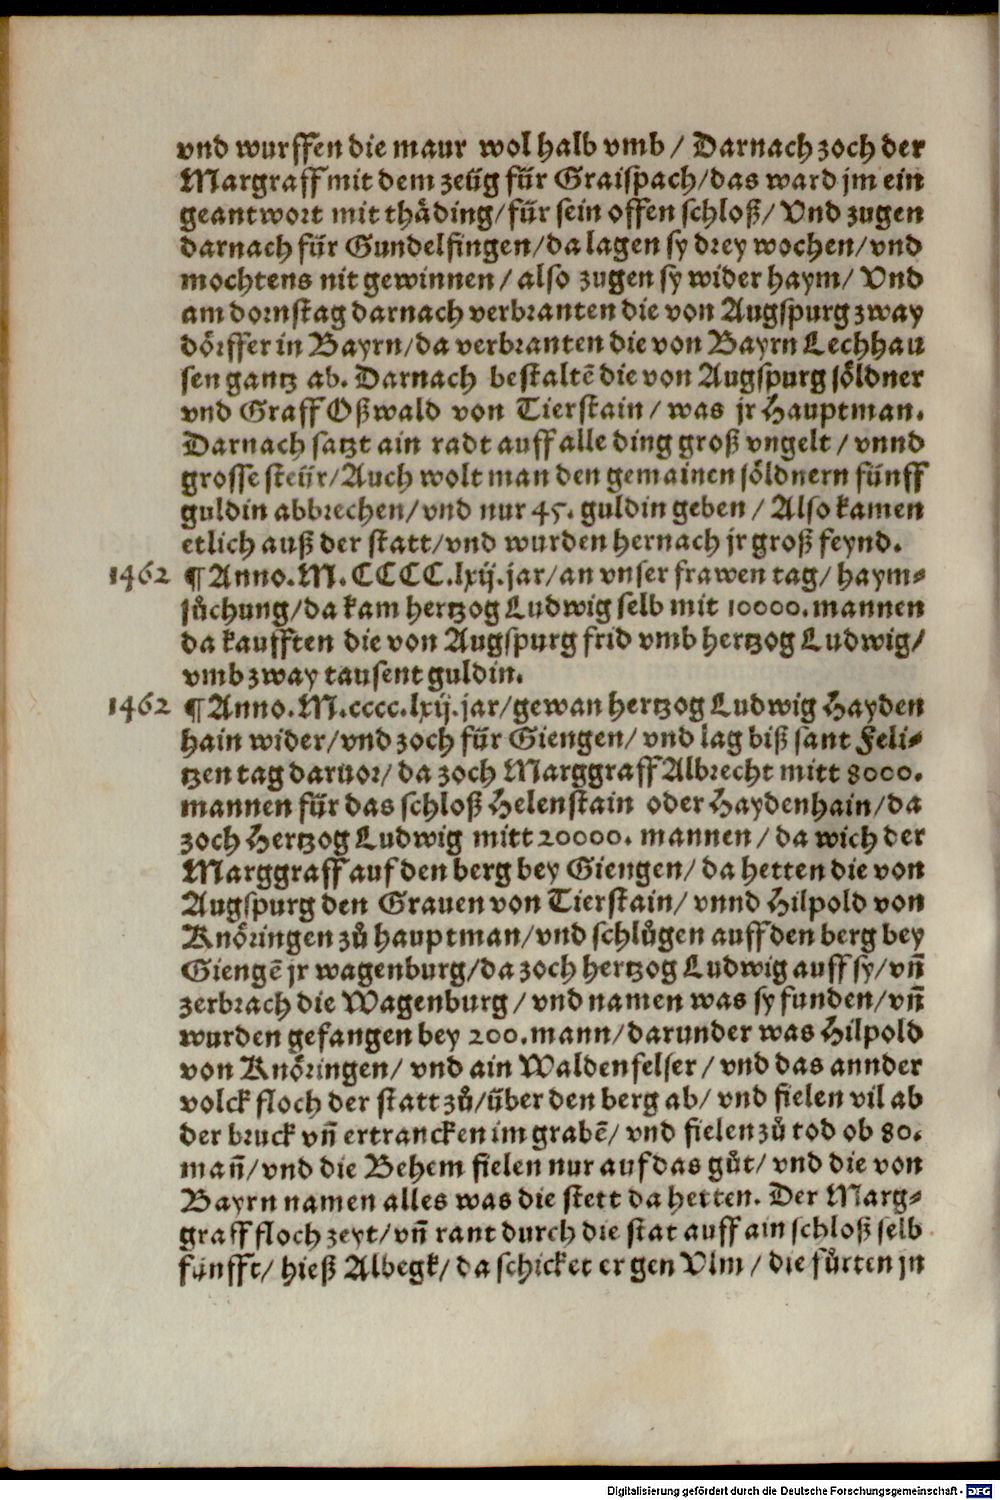 vnd wurffen die maur wol halb vmb / Darnach zoch der
Margraff mit dem zeüg für Graispach/das ward jm ein
geantwort mit thäding/für sein offen schloß/ Vnd zugen
darnach für Gundelfingen/da lagen sy drey wochen/vnd
mochtens nit gewinnen / also zugen sy wider haym/ Vnd
am dornstag darnach verbranten die von Augspurg zway
dörffer in Bayrn/da verbranten die von Bayrn Lechhau
sen gantz ab. Darnach bestaltē die von Augspurg söldner
vnd Graff Oßwald von Tierstain / was jr Hauptman.
Darnach satzt ain radt auff alle ding groß vngelt / vnnd
grosse steür/Auch wolt man den gemainen söldnern fünff
guldin abbrechen/vnd nur 45. guldin geben / Also kamen
etlich auß der statt/vnd wurden hernach jr groß feynd.
1462 ¶ Anno. M. CCCC.lxij.jar/an vnser frawen tag/ haym-
sůchung/da kam hertzog Ludwig selb mit 10000. mannen
da kaufften die von Augspurg frid vmb hertzog Ludwig/
vmb zway tausent guldin.
1462 ¶ Anno. M.cccc.lxij.jar/gewan hertzog Ludwig Hayden
hain wider/vnd zoch für Giengen/ vnd lag biß sant Feli-
tzen tag daruor/ da zoch Marggraff Albrecht mitt 8000.
mannen für das schloß Helenstain oder Haydenhain/da
zoch Hertzog Ludwig mitt 20000. mannen / da wich der
Marggraff auf den berg bey Giengen/ da hetten die von
Augspurg den Grauen von Tierstain/ vnnd Hilpold von
Knöringen zů hauptman/vnd schlůgen auff den berg bey
Giengē jr wagenburg/da zoch hertzog Ludwig auff sy/vn̄
zerbrach die Wagenburg / vnd namen was sy funden/vn̄
wurden gefangen bey 200.mann/darunder was Hilpold
von Knöringen/ vnd ain Waldenfelser / vnd das annder
volck floch der statt zů/über den berg ab/ vnd fielen vil ab
der bruck vn̄ ertrancken im grabē/ vnd fielen zů tod ob 80.
man̄/vnd die Behem fielen nur auf das gůt/ vnd die von
Bayrn namen alles was die stett da hetten. Der Marg-
graff floch zeyt/vn̄ rant durch die stat auff ain schloß selb
fünfft/ hieß Albegk/ da schicket er gen Vlm / die fůrten jn
Digitalisierung gefördert durch die Deutsche Forschungsgemeinschaft - DFG